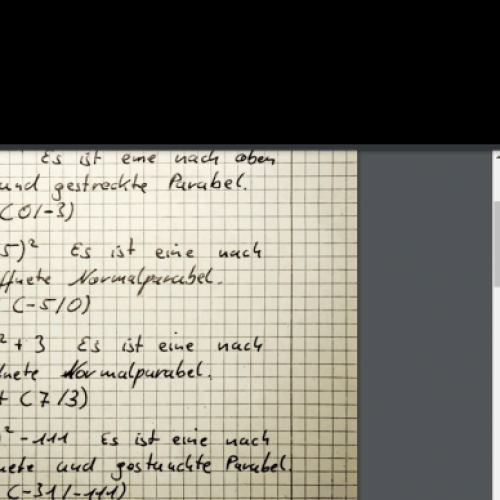 Es ist eine nach oben
und gestreckte Parabel.
(0/-3)
5)² Es ist eine nach
ffnete Normalparabel.
(-5/0)
² + 3 Es ist eine nach
fnete Normalparabel.
t (7/3)
)² - 111 Es ist eine nach
nete und gestauchte Parabel.
(-31/-111)